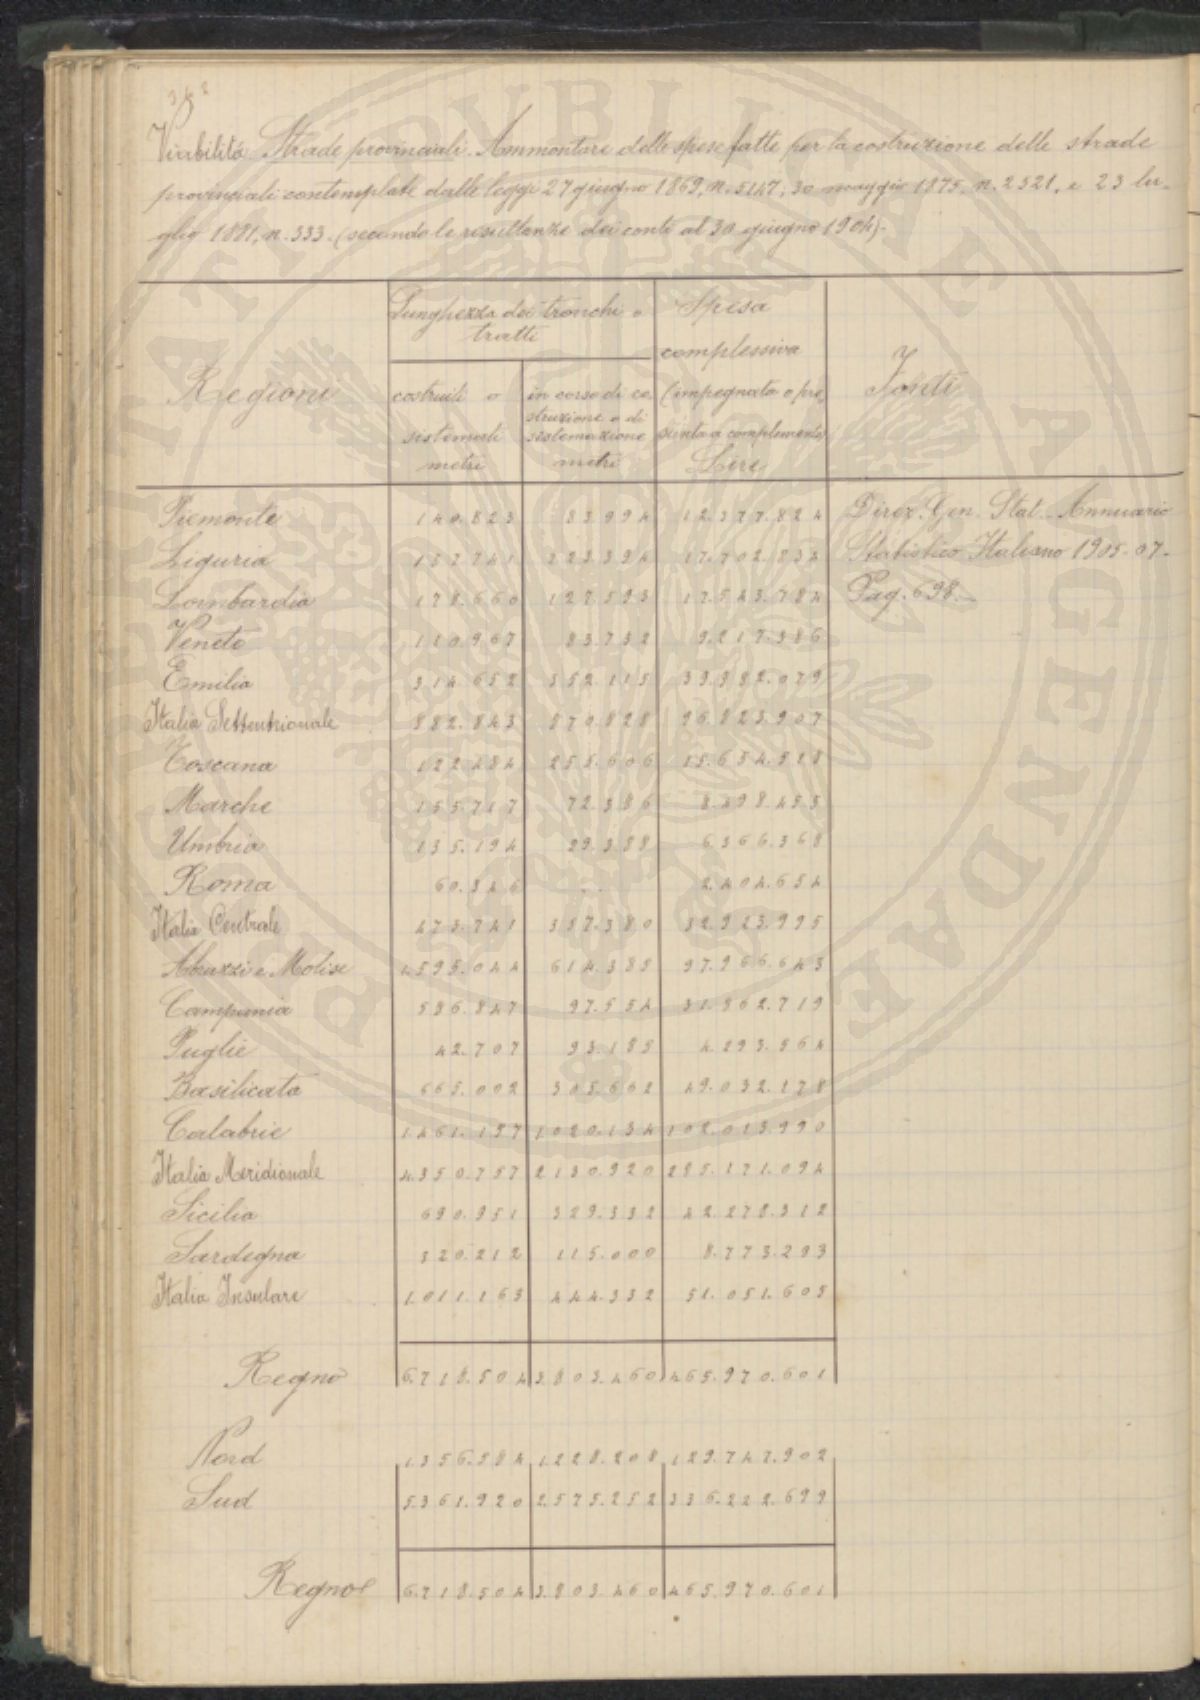 342
Viabilità. Strade provinciali. Ammontare delle spese fatte per la costruzione delle strade
provinciali contemplate dalle leggi 27 giugno 1869, n. 5147; 30 maggio 1875, n. 2521, e 23 lu-
glio 1881, n. 333. (secondo le risultanze dei conti al 30 giugno 1904).
Regioni
Lunghezza dei tronchi o
tratti
costruiti o
sistemati
metri
in corso di co
struzione o di
sistemazione
metri
Spesa
complessiva
(impegnata o pre
sunta a complemento)
Lire
Fonti
Piemonte 140.823 83.994 12.377.824 Direz. Gen. Stat. Annuario
Liguria 137.741 223.394 17.702.834 Statistico Italiano 1905-07-
Lombardia 178.660 127.593 17.543.784 Pag. 698.-
Veneto 110.967 83.732 9.217.386
Emilia 314.652 352.115 39.982.079
Italia Settentrionale 882.843 870.828 96.823.907
Toscana 122.484 255.606 15.654.518
Marche 155.717 72.386 8.498.455
Umbria 135.194 29.388 6.366.368
Roma 60.346 .. 2.404.654
Italia Centrale 473.741 357.380 32.923.995
Abruzzi e Molise 1.595.044 614.385 97.966.643
Campania 586.847 97.554 31.862.719
Puglie 42.707 93.185 4.295.564
Basilicata 665.002 305.662 49.032.178
Calabrie 1.461.157 1.020.134 102.013.990
Italia Meridionale 4.350.757 2.130.920 285.171.094
Sicilia 690.951 329.332 42.278.312
Sardegna 320.212 115.000 8.773.293
Italia Insulare 1.011.163 444.332 51.051.605
Regno 6.718.504 3.803.460 465.970.601
Nord 1.356.584 1.228.208 129.747.902
Sud 5.361.920 2.575.252 336.222.699
Regno 6.718.504 3.803.460 465.970.601